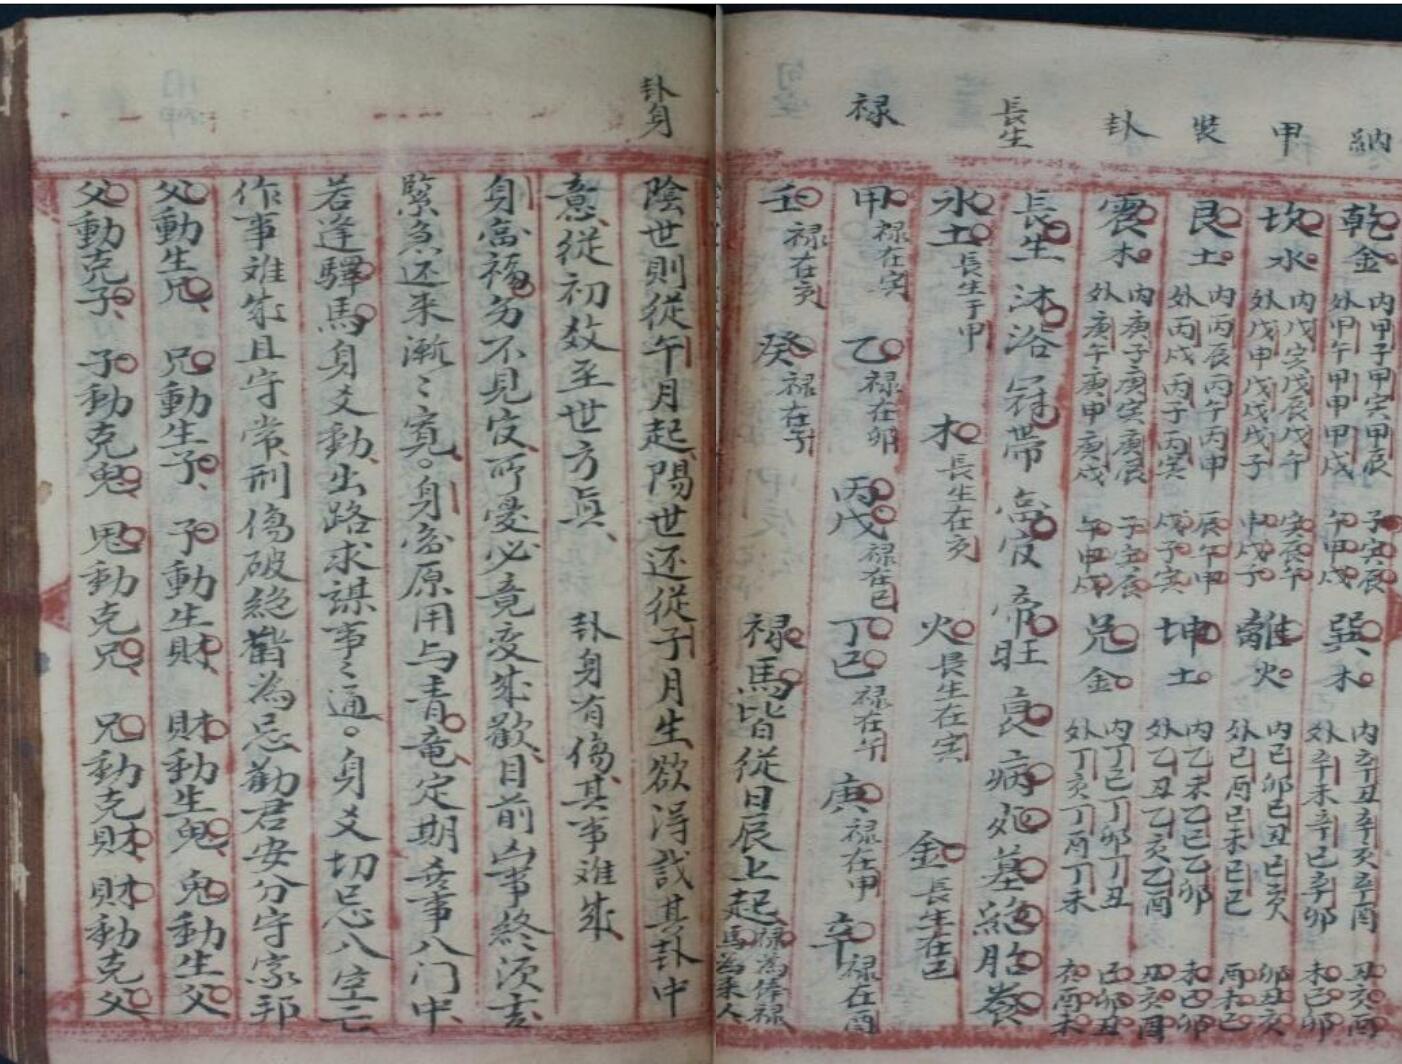 納甲裝卦
乾金 內甲子甲寅甲辰 外甲午甲申甲戌 子寅辰 午申戌 巽木 內辛丑辛亥辛酉 外辛未辛巳辛卯 丑亥酉 未巳卯
坎水 內戊寅戊辰戊午 外戊申戊戌戊子 寅辰午 申戌子 離火 內己卯己丑己亥 外己酉己未己巳 卯丑亥 酉未巳
艮土 內丙辰丙午丙申 外丙戌丙子丙寅 辰午申 戌子寅 坤土 內乙未乙巳乙卯 外乙丑乙亥乙酉 未巳卯 丑亥酉
震木 內庚子庚寅庚辰 外庚午庚申庚戌 子寅辰 午申戌 兑金 內丁巳丁卯丁丑 外丁亥丁酉丁未 巳卯丑 亥酉未
長生
長生沐浴冠帶 臨官帝旺衰病死墓絕胎養
水土長生于申 木長生在亥 火長生在寅 金長生在巳
禄
甲禄在寅 乙禄在卯 丙戊禄在巳 丁己禄在午 庚禄在申 辛禄在酉
壬禄在亥 癸禄在子 禄馬皆從日辰上起 禄為俸禄 馬為来人
卦身
陰世則從午月起陽世还從子月生欲淂識其卦中
意從初数至世方真、 卦身有傷其事难成
身臨福勿不見官所憂必竟变成歡目前凶事終須吉
緊急还来漸〻寬。身臨原用与青竜定期喜事入门中
若逢驛馬身爻動出路求謀事〻通。身爻切忌入空亡
作事难成且守常刑傷破絕皆為忌勸君安分守家邦
父動生兄、 兄動生子、 子動生財、 財動生鬼、 鬼動生父
父動克子、 子動克鬼、 鬼動克兄、 兄動克財、 財動克父